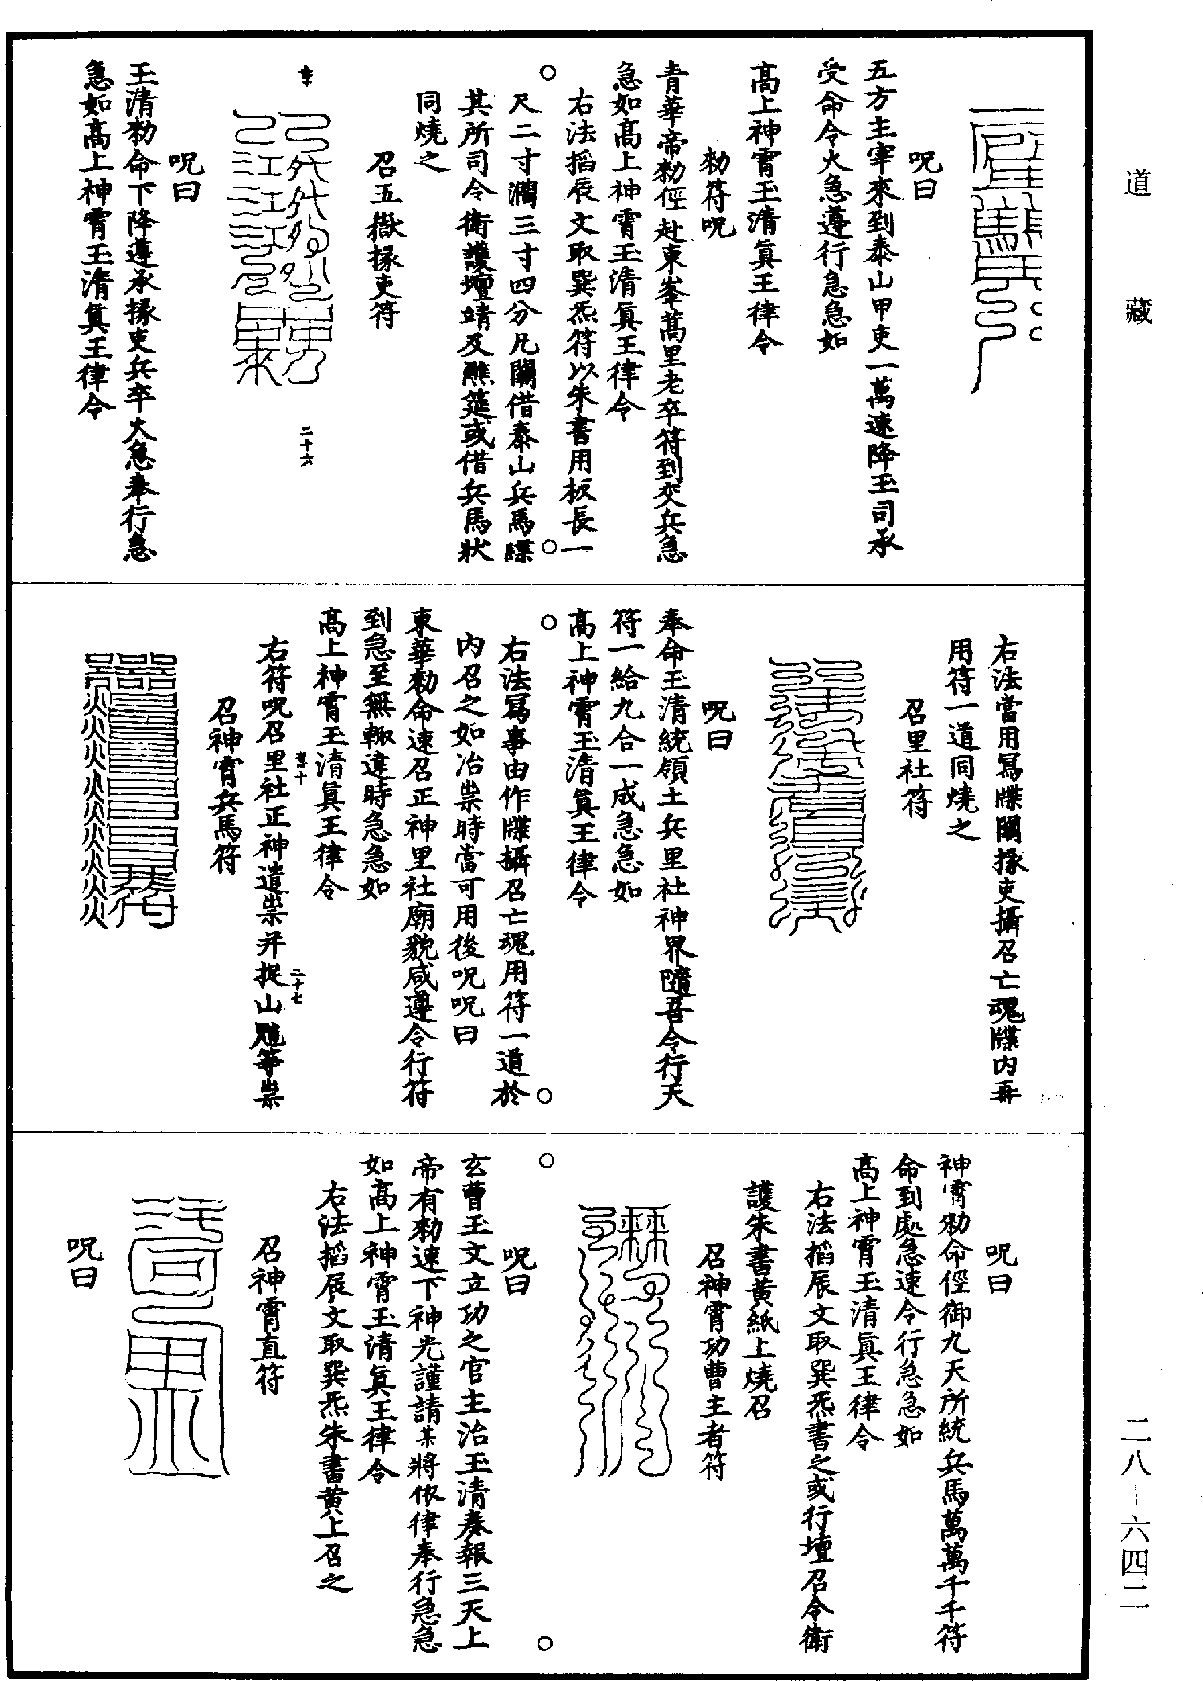 道藏
呪曰
五方主宰來到泰山甲吏一萬速降玉司承
受命令火急遵行急急如
高上神霄玉清眞王律令
勑符呪
青華帝勑徑赴東峯蒿里老卒符到交兵急
急如高上神霄玉清眞王律令
右法搯辰文取巽炁符以朱書用板長一
尺二寸濶三寸四分凡關借泰山兵馬牒
其所司令衛護壇靖及醮筵或借兵馬狀
同燒之
召五嶽掾吏符
二十六
呪曰
玉清勑命下降遵承掾吏兵卒火急奉行急
急如高上神霄玉清眞王律令
右法當用寫牒關掾吏攝召亡魂牒内再
用符一道同燒之
召里社符
呪曰
奉命玉清統領土兵里社神界隨吾令行天
符一給九合一成急急如
高上神霄玉清眞王律令
右法寫事由作牒攝召亡魂用符一道於
内召之如冶祟時當可用後呪呪曰
東華勑命速召正神里社廟貌咸遵令行符
到急至無輙違時急急如
高上神霄玉清眞王律令
二十七
右符呪召里社正神遣祟并捉山魈等祟
召神霄兵馬符
呪曰
神霄勑命徑御九天所統兵馬萬萬千千符
命到處急速令行急急如
高上神霄玉清眞王律令
右法搯辰文取巽炁書之或行壇召令衛
護朱書黄紙上燒召
召神霄功曹主者符
呪曰
玄曹玉文立功之官主治玉清奏報三天上
帝有勑速下神光謹請某將依律奉行急急
如高上神霄玉清眞王律令
右法搯辰文取巽炁朱書黄上召之
召神霄直符
呪曰
二八－六四二